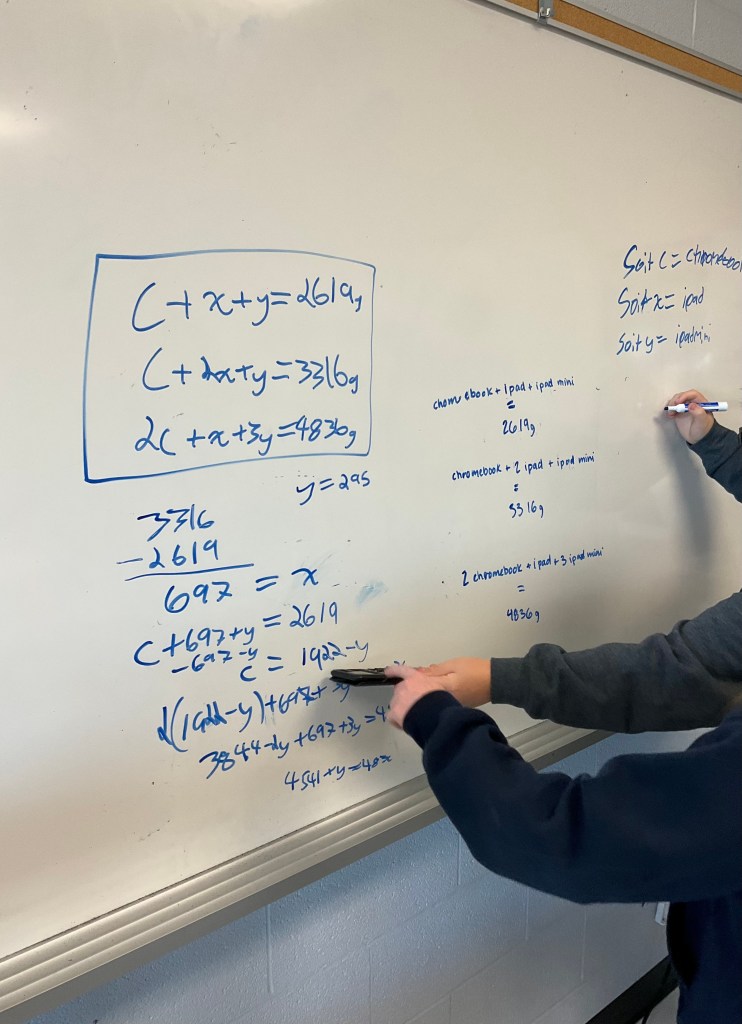 C+x+y=2619g
C+2x+y=3316g
2C+x+3y=4836g
y=295
3316
-2619
697 = x
C+697+y = 2619
-697-y
C = 1922-y
2(1922-y)+697+3y
3844-2y+697+3y=4
4541+y=483
chomebook + 1 pad + ipad mini
=
2619g
chromebook + 2 ipad + ipad mini
=
3316g
2 chromebook + ipad + 3 ipad mini
=
4836g
Soit C = chromeboo
Soit x = ipad
Soit y = ipadmini